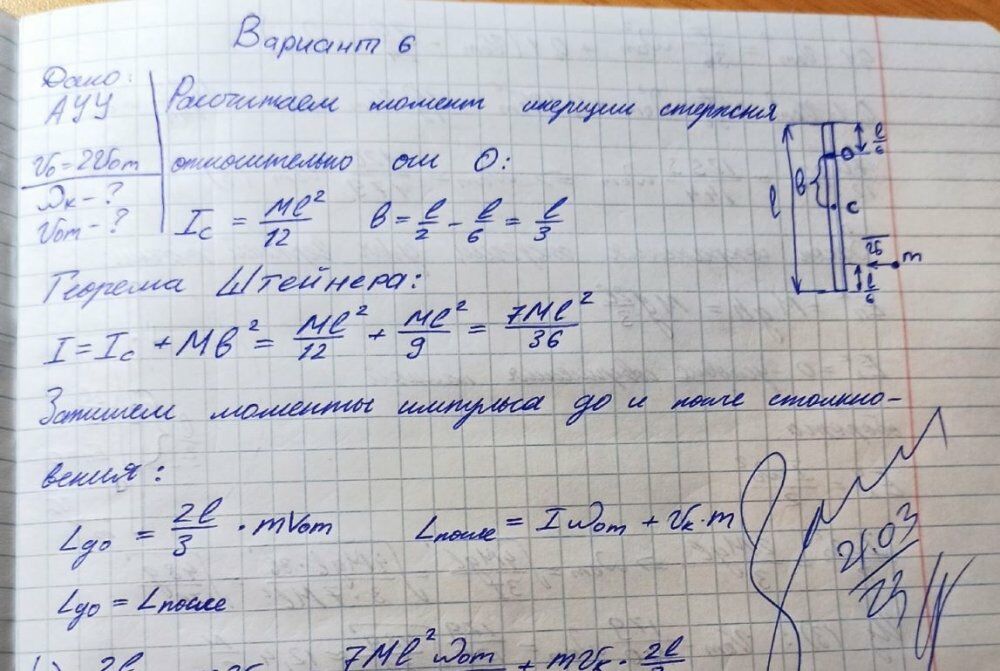 Вариант 6
Дано:
АУУ
v₀ = 2v₀m
Δк - ?
v₀m - ?
Рассчитаем момент инерции стержня
относительно оси О:
I_c = Ml²/12 b = l/2 - l/6 = l/3
Теорема Штейнера:
I = I_c + Mb² = Ml²/12 + Ml²/9 = 7Ml²/36
Запишем моменты импульса до и после столкно-
вения:
L_до = 2l/3 · mv₀m L_после = Iω₀m + v_к·m
L_до = L_после
7Ml²ω₀m + mv_к · 2l
l
b
l/6
O
C
v₀
m
l/6
21.03
23